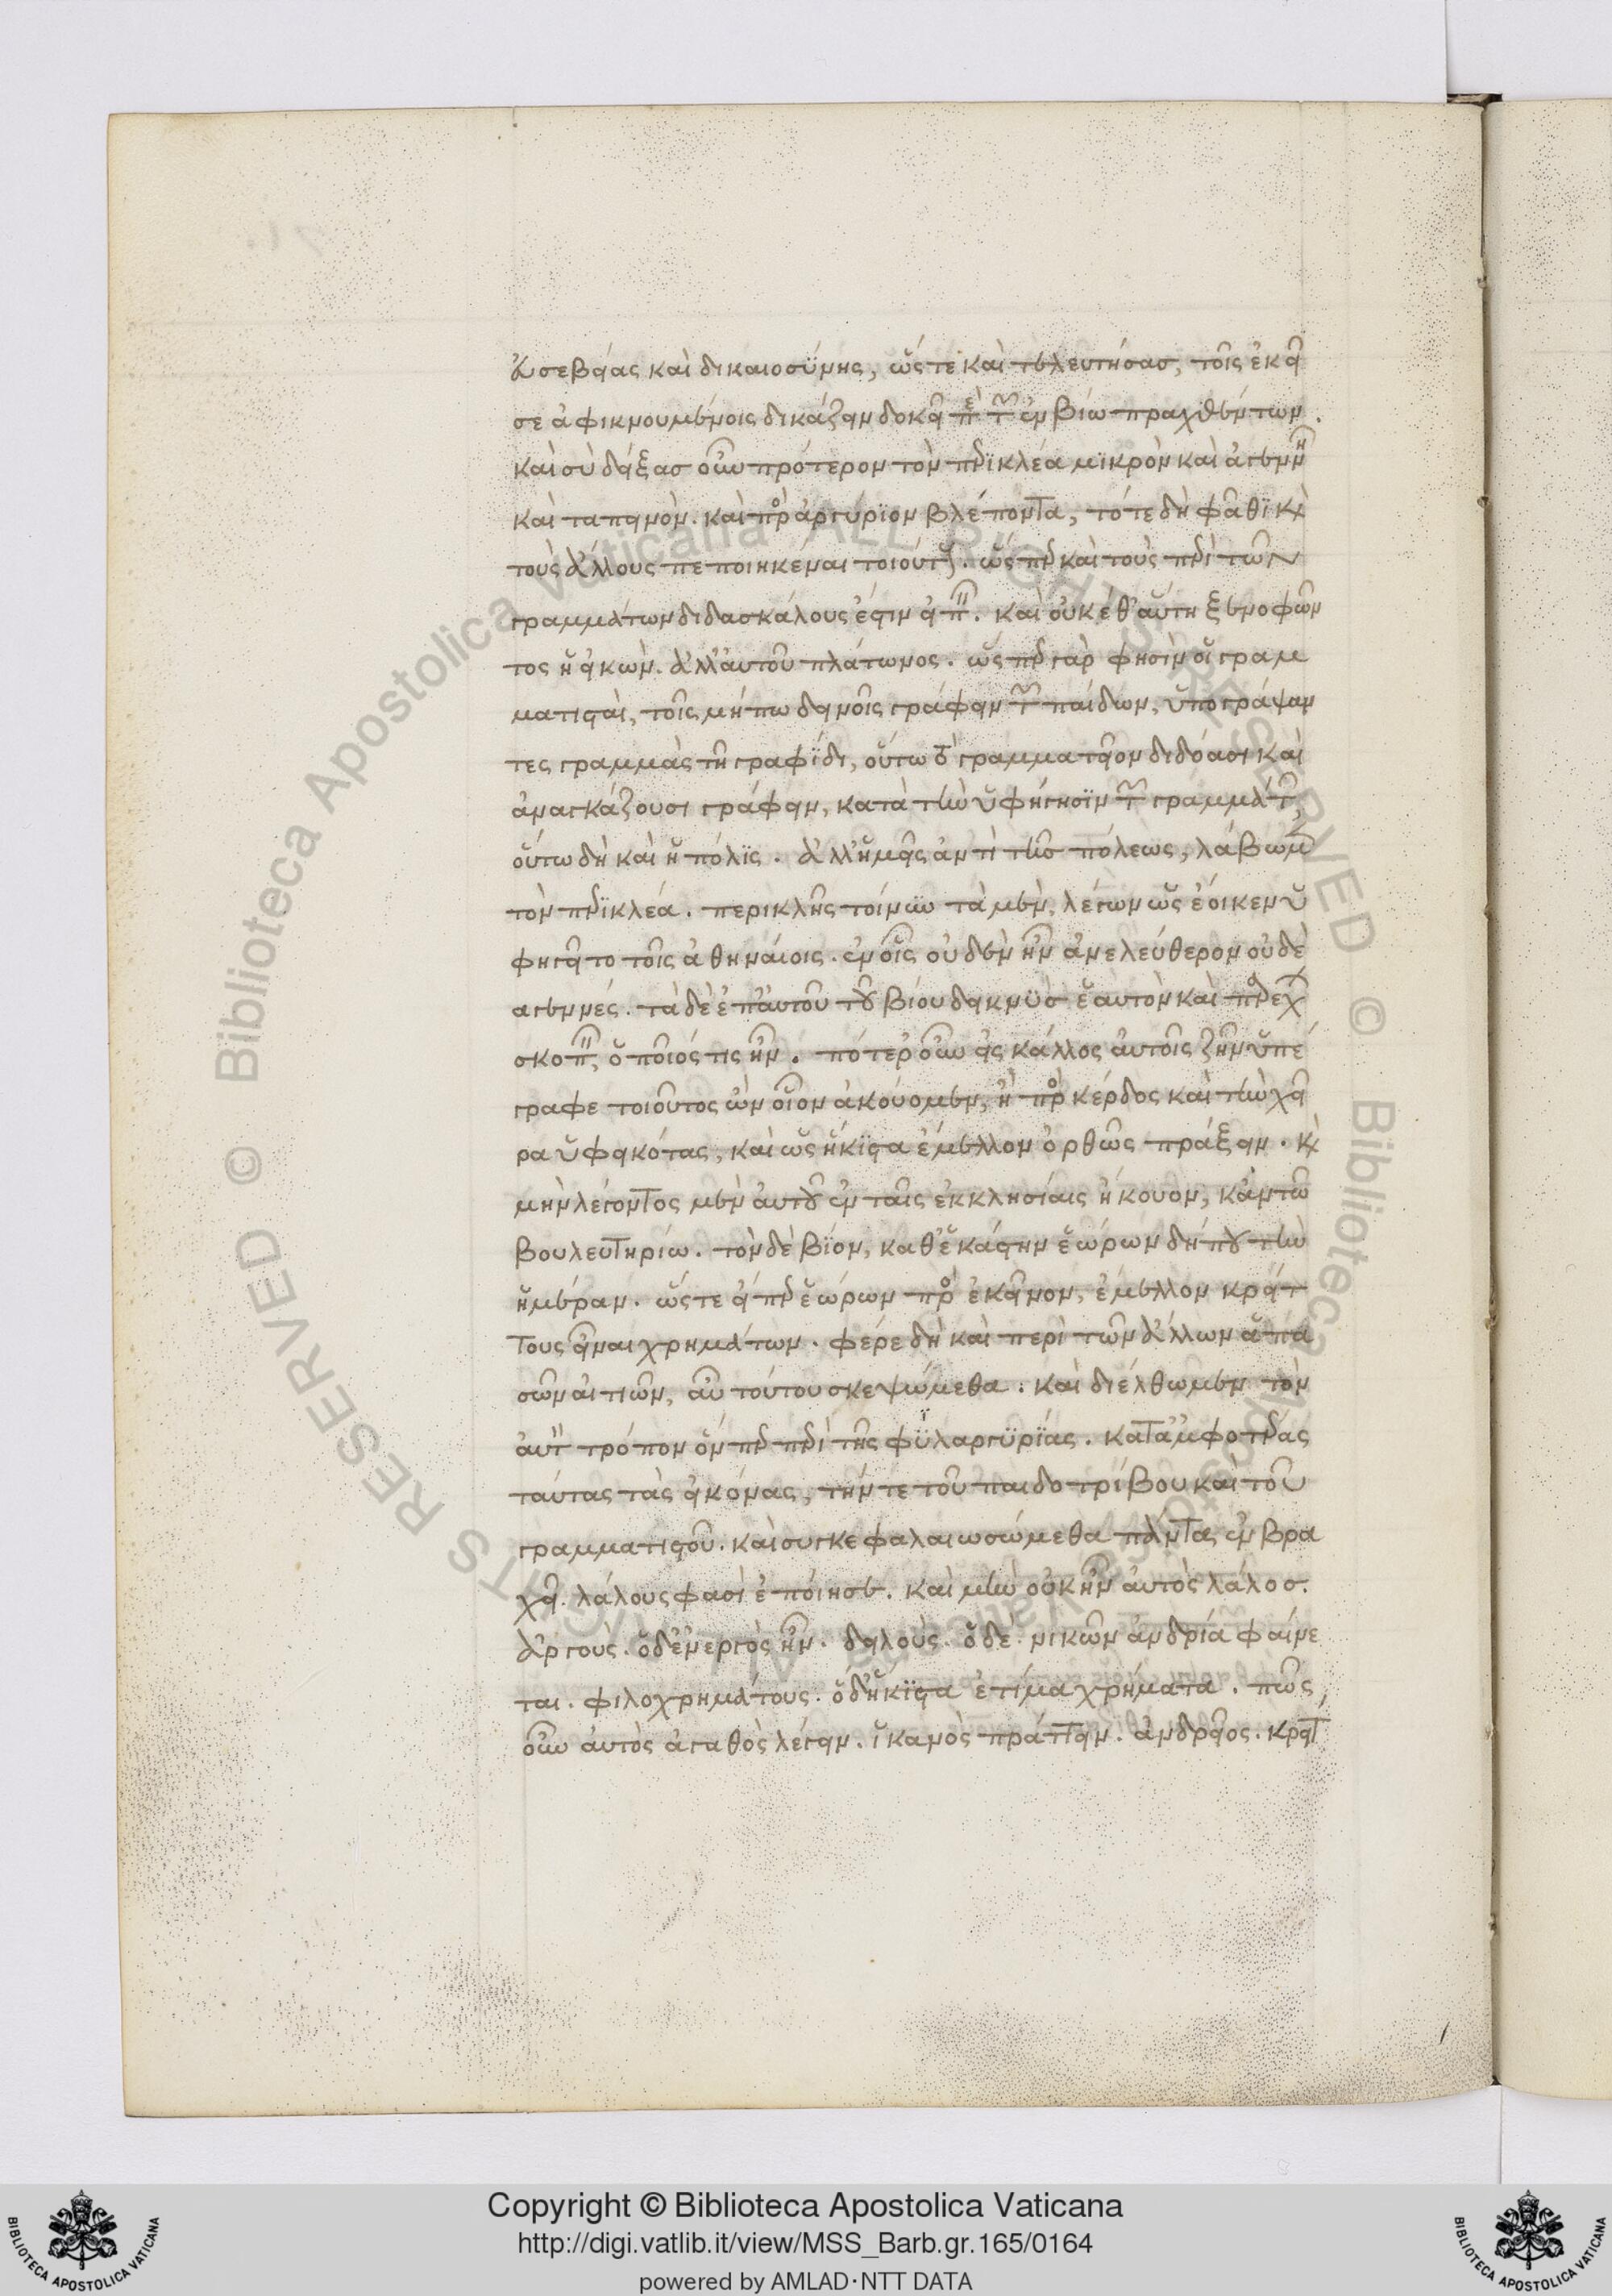 εὐσεβείας καὶ δικαιοσύνης, ὥς τε καὶ τελευτήσασ, τοῖς ἐκεῖ
σε ἀφικνουμένοις δικάζειν δοκεῖ περὶ τῶν ἐν βίω πραχθέντων.
καὶ σὺ δείξασ οὖν πρότερον τὸν περϊκλέα μϊκρὸν καὶ ἀγεννῆ
καὶ ταπεινὸν. καὶ πρὸς ἀργύρϊον βλέποντα, τότε δὴ φᾶθϊ καὶ
τοὺς ἄλλους πεποιηκέναι τοιούτους. ὥς περ καὶ τοὺς περὶ τῶν
γραμμάτων διδασκάλους ἔστιν εἰπεῖν. καὶ οὐκέθ' αὕτη ξενοφῶν
τος ἡ εἰκὼν. ἀλλ' αὐτοῦ πλάτωνος. ὥς περ γὰρ φησὶν οἱ γραμ
ματισταὶ, τοῖς μήπω δεινοῖς γράφειν τῶν παίδων, ὑπογράψαν
τες γραμμὰς τῆ γραφΐδι, οὕτω τὸ γραμματεῖον διδόασι καὶ
ἀναγκάζουσι γράφειν, κατὰ τὴν ὑφήγησϊν τῶν γραμμάτων,
οὕτω δὴ καὶ ἡ πόλϊς. ἀλλ' ἡμεῖς ἀντὶ τῆς πόλεως, λάβωμεν
τὸν περϊκλέα. περικλῆς τοίνυν τὰ μὲν, λέγων ὡς ἔοικεν ὑ
φηγεῖτο τοῖς ἀθηναίοις. ἐν οἷς οὐδὲν ἦν ἀνελεύθερον οὐδὲ
αγεννές. τὰ δὲ ἐπ' αὐτοῦ τοῦ βίου δεικνϋσ ἑαυτὸν καὶ παρέχων
σκοπεῖν, ὁποῖός τις ἦν. πότερ' οὖν εἰς κάλλος αὐτοῖς ζῆν ὑπέ
γραφε τοιοῦτος ὢν οἷον ἀκούομεν, ἢ πρὸς κέρδος καὶ τὴν χεῖ
ρα ὑφεικότας, καὶ ὡς ἥκϊστα ἔμελλον ὀρθῶς πράξειν. καὶ
μὴν λέγοντος μὲν αὐτοῦ ἐν ταῖς ἐκκλησίαις ἤκουον, κἀν τῶ
βουλευτηρίω. τὸν δὲ βΐον, καθ' ἑκάστην ἑώρων δήπου τὴν
ἡμέραν. ὥς τε εἴ περ ἑώρων πρὸς ἐκεῖνον, ἔμελλον κρείτ
τους εἶναι χρημάτων. φέρε δὴ καὶ περὶ τῶν ἄλλων ἁπα
σῶν αἰτιῶν, αὖ τούτου σκεψώμεθα. καὶ διέλθωμεν τὸν
αὐτὸν τρόπον ὅν περ περὶ τῆς φϊλαργϋρΐας. κατ' ἀμφοτέρας
ταύτας τὰς εἰκόνας, τήν τε τοῦ παιδοτρίβου καὶ τοῦ
γραμματιστοῦ. καὶ συγκεφαλαιωσώμεθα πάντας ἐν βρα
χεῖ. λάλους φασὶ ἐποίησε. καὶ μὴν οὐκ ἦν αὐτὸς λάλοσ.
ἀργοὺς. ὁ δ' ἐνεργὸς ἦν. δειλοὺς. ὁ δὲ νικῶν ἀνδρία φαίνε
ται. φιλοχρημάτους. ὁ δ' ἥκϊστα ἐτίμα χρήματα. πῶς
οὖν αὐτὸς ἀγαθὸς λέγειν. ἱκανὸς πράττειν. ἀνδρεῖος. κρείτ
Copyright © Biblioteca Apostolica Vaticana
http://digi.vatlib.it/view/MSS_Barb.gr.165/0164
powered by AMLAD·NTT DATA